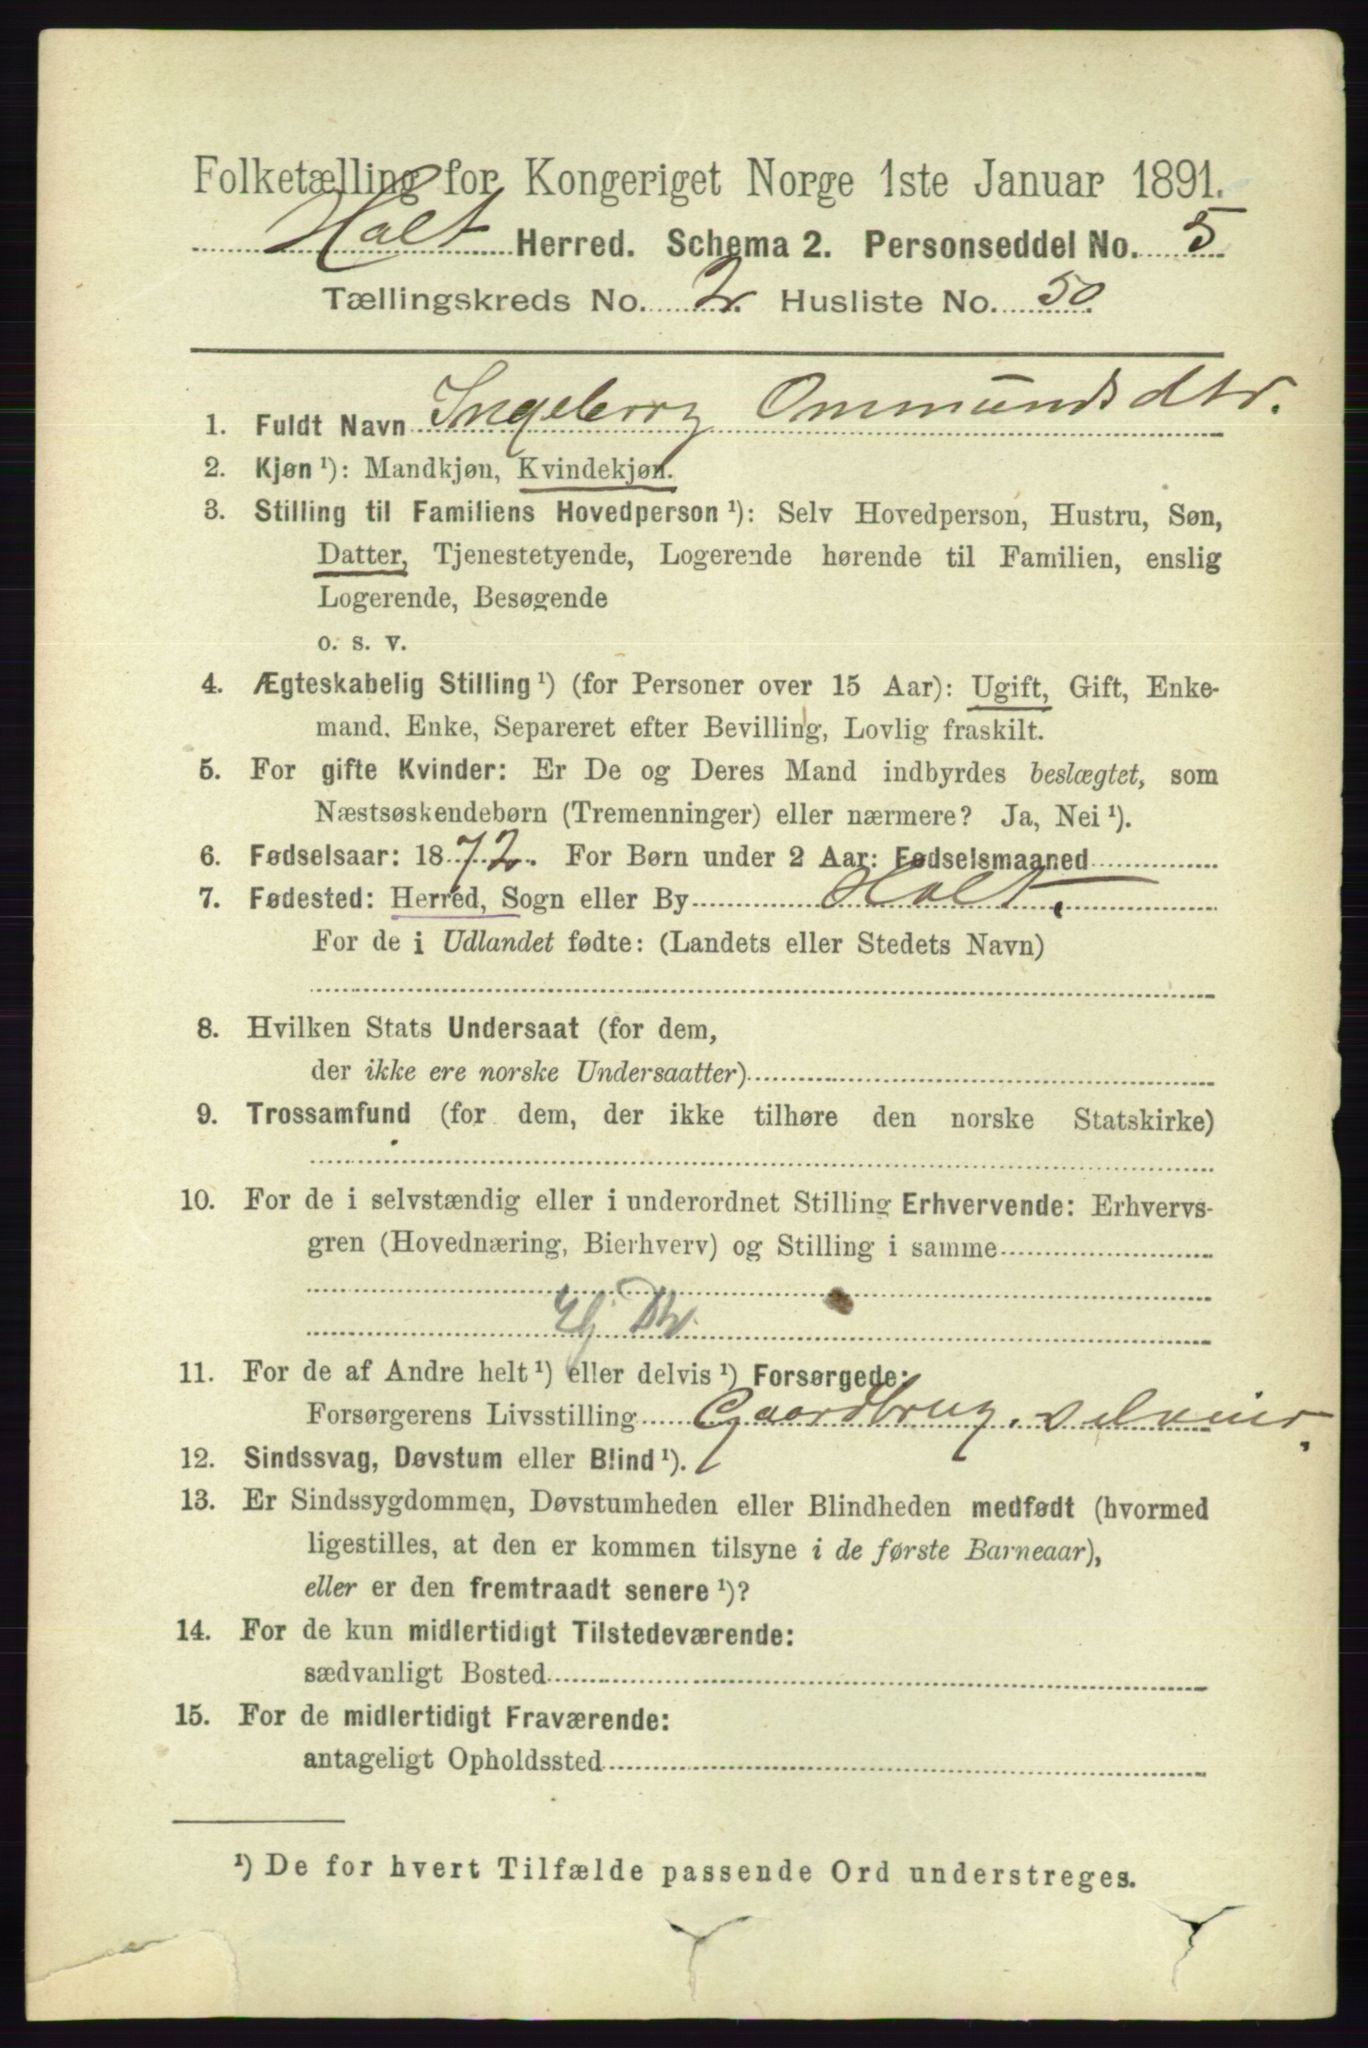 Folketælling for Kongeriget Norge 1ste Januar 1891.
Holt Herred. Schema 2. Personseddel No. 5
Tællingskreds No. 2. Husliste No. 50.
1. Fuldt Navn Ingeborg Ommundsdtr.
2. Kjøn ¹): Mandkjøn, Kvindekjøn.
3. Stilling til Familiens Hovedperson ¹): Selv Hovedperson, Hustru, Søn,
Datter, Tjenestetyende, Logerende hørende til Familien, enslig
Logerende, Besøgende
o. s. v.
4. Ægteskabelig Stilling ¹) (for Personer over 15 Aar): Ugift, Gift, Enke-
mand, Enke, Separeret efter Bevilling, Lovlig fraskilt.
5. For gifte Kvinder: Er De og Deres Mand indbyrdes beslægtet, som
Næstsøskendebørn (Tremenninger) eller nærmere? Ja, Nei ¹).
6. Fødselsaar: 1872. For Børn under 2 Aar: Fødselsmaaned
7. Fødested: Herred, Sogn eller By Holt.
For de i Udlandet fødte: (Landets eller Stedets Navn)
8. Hvilken Stats Undersaat (for dem,
der ikke ere norske Undersaatter)
9. Trossamfund (for dem, der ikke tilhøre den norske Statskirke)
10. For de i selvstændig eller i underordnet Stilling Erhvervende: Erhvervs-
gren (Hovednæring, Bierhverv) og Stilling i samme
11. For de af Andre helt ¹) eller delvis ¹) Forsørgede:
Forsørgerens Livsstilling Gaardbrug, selveier.
12. Sindssvag, Døvstum eller Blind ¹).
13. Er Sindssygdommen, Døvstumheden eller Blindheden medfødt (hvormed
ligestilles, at den er kommen tilsyne i de første Barneaar),
eller er den fremtraadt senere ¹)?
14. For de kun midlertidigt Tilstedeværende:
sædvanligt Bosted
15. For de midlertidigt Fraværende:
antageligt Opholdssted
¹) De for hvert Tilfælde passende Ord understreges.